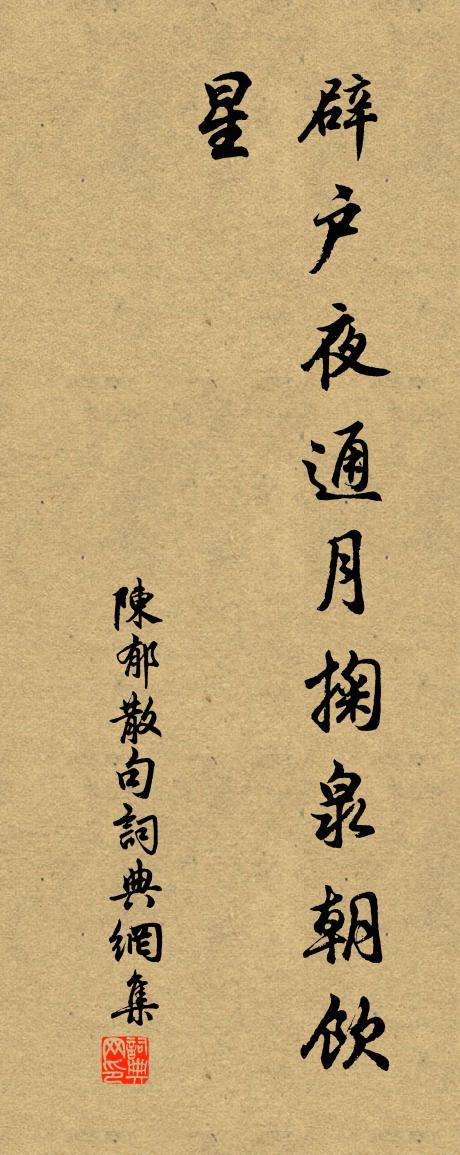 辟户夜通月掬泉朝饮
星
陳郁散句詞典網集
詞典
网印